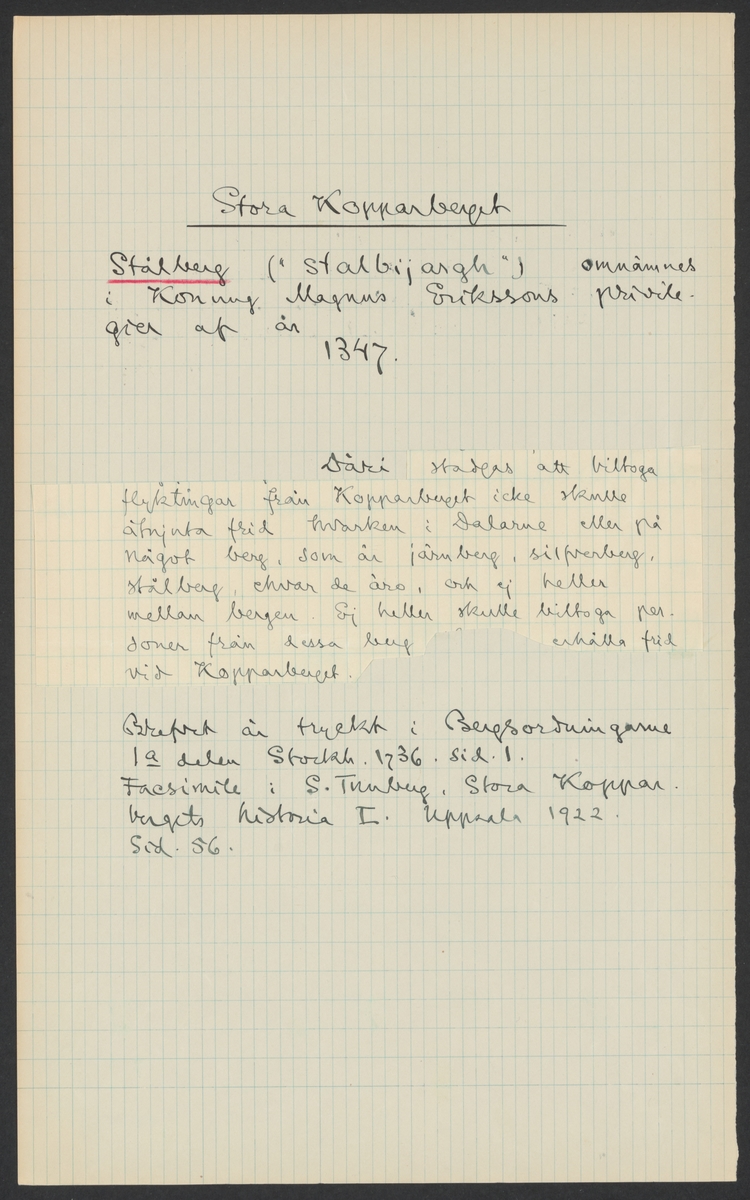 Stora Kopparberget
Stålberg ("Stalbijargh") omnämnes
i Konung Magnus Erikssons privile-
gier af år
1347.
Däri stadgas att biltoga
flyktingar från Kopparberget icke skulle
åtnjuta frid hvarken i Dalarne eller på
något berg, som är järnberg, silfverberg,
stålberg, ehvar de äro, och ej heller
mellan bergen. Ej heller skulle biltoga per-
soner från dessa berg erhålla frid
vid Kopparberget.
Brefvet är tryckt i Bergsordningarne
1a delen Stockh. 1736. sid. 1.
Facsimile i S. Tunberg, Stora Koppar-
bergets historia I. Uppsala 1922.
Sid. 56.